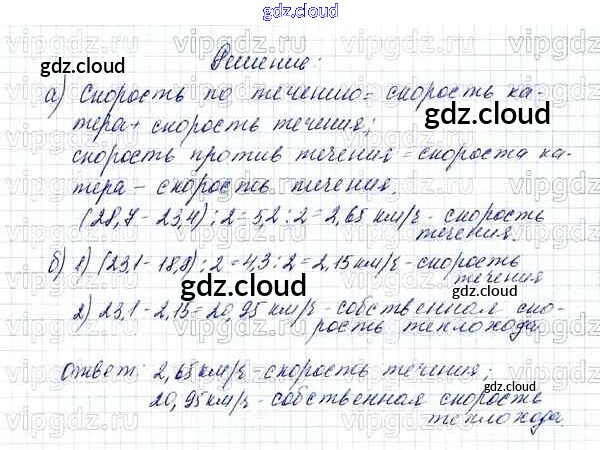 gdz.cloud
Решение:
gdz.cloud
а) Скорость по течению = скорость ка-
gdz.cloud
тера + скорость течения;
скорость против течения = скорость ка-
тера - скорость течения.
gdz.cloud
(28,7 - 23,4) : 2 = 5,2 : 2 = 2,65 км/ч - скорость
течения.
б) 1) (23,1 - 18,8) : 2 = 4,3 : 2 = 2,15 км/ч - скорость
течения
gdz.cloud
2) 23,1 - 2,15 = 20,95 км/ч - собственная ско-
рость теплохода
Ответ: 2,65 км/ч - скорость течения;
20,95 км/ч - собственная скорость
теплохода.
gdz.cloud
vipgdz.ru